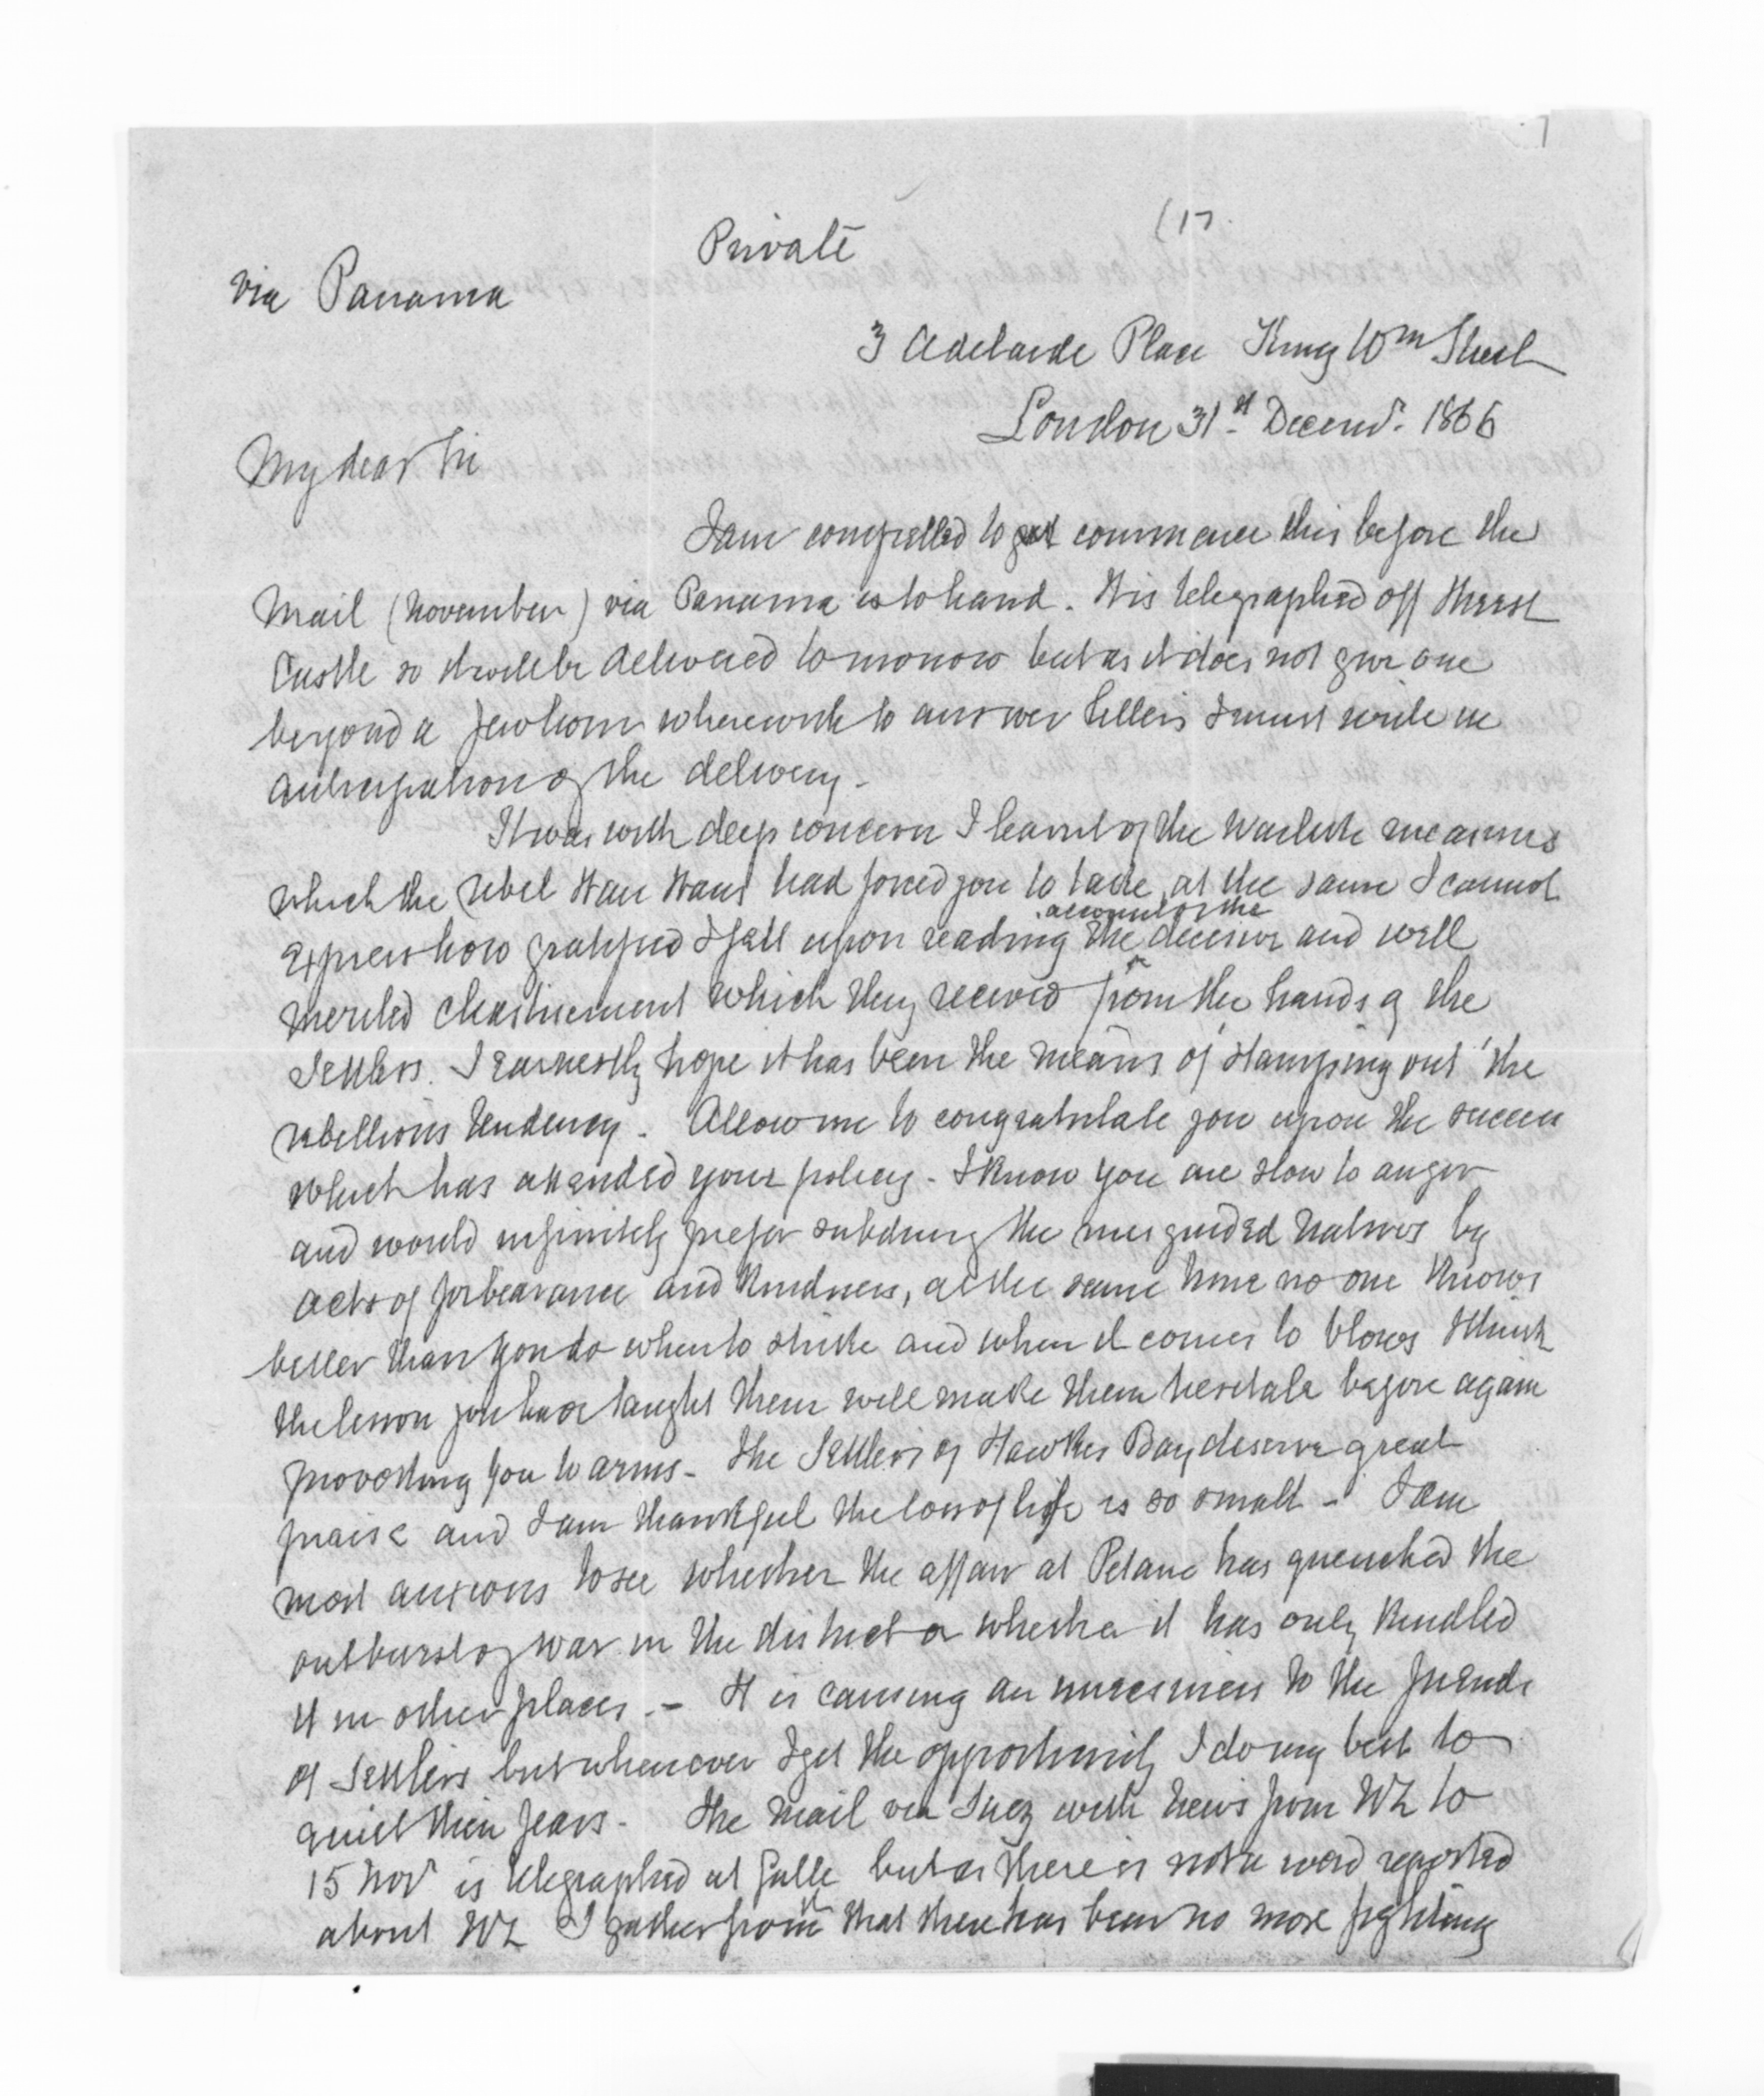 (17.
Private
via Panama
3 Adelaide Place King Wm Street
London 31st Decemr. 1866
My dear Sir
I am compelled to commence this before the
Mail (November) via Panama is to hand. It is telegraphed off Hurst
Castle so it will be delivered tomorrow but as it does not give one
beyond a few hours wherewith to answer letters I must write in
anticipation of the delivery -
It was with deep concern I learnt of the Warlike measures
which the rebel Hau Haus had forced you to take, at the same I cannot
express how gratified I felt upon reading the account of the decisive and well
merited chastisement which they received from the hands of the
Settlers. I earnestly hope it has been the means of 'stamping out' the
rebellious tendency - Allow me to congratulate you upon the success
which has attended your policy - I know you are slow to anger
and would infinitely prefer subduing the misguided natives by
acts of forbearance and kindness, at the same time no one knows
better than you do when to strike and when it comes to blows I think
the lesson you have taught them will make them hesitate before again
provoking you to arms - The Settlers of Hawkes Bay deserve great
praise and I am thankful the loss of life is so small - I am
most anxious to see whether the affair at Petane has quenched the
outburst of war in the district or whether it has only kindled
it in other places. - It is causing an uneasiness to the friends
of Settlers but whenever I get the opportunity I do my best to
quiet their fears - The Mail via Suez with news from NZ to
15 Novr is telegraphed at Galle but as there is not a word reported
about NZ I gather from it that there has been no more fighting